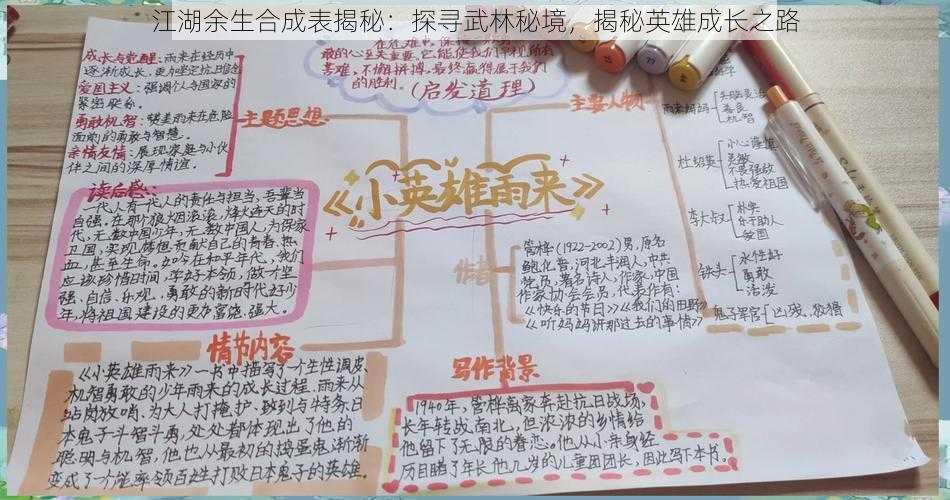 江湖余生合成表揭秘：探寻武林秘境，揭秘英雄成长之路
成长与觉醒:雨来在经历中
逐渐成长,更加坚定抗日信念
爱国主义:强调个人与国家的
紧密联系。
勇敢机智:赞美雨来在危险
面前的勇敢与智慧。
亲情友情:展现家庭与小伙
伴之间的深厚情谊。
主题思想
敌的心至关重要,它能使我们
苦难,不懈拼搏,最终赢得属于我们
的胜利。
(启发道理)
主要人物
雨来妈妈
善良
机智
杜绍英
小心谨慎
勇敢
不畏强敌
热爱祖国
李大叔
朴实
乐于助人
爱国
铁头
水性好
勇敢
活泼
鬼子军官
凶残、狡猾
《小英雄雨来》
读后感:
一代人有一代人的责任与担当,吾辈当
自强。在那个狼烟滚滚,烽火连天的时
代,无数中国少年,无数中国人,为保家
卫国,实现梦想贡献自己的青春、热
血,甚至生命。如今在和平年代,我们
应该珍惜时间,学好本领,做个坚
强、自信、乐观、勇敢的新时代好少
年,将祖国建设的更加富饶、强大。
作者
管桦(1922-2002)男,原名
鲍化普,河北丰润人,中共
党员,著名诗人,作家,中国
作家协会会员,代表作有:
《快乐的节日》《我们的田野》
《听妈妈讲那过去的事情》
情节内容
《小英雄雨来》一书中描写了一个生性调皮、
机智勇敢的少年雨来的成长过程。雨来从
站岗放哨、为大人打掩护、到与特务、日
本鬼子斗智斗勇,处处都体现出了他的
聪明与机智,他也从最初的捣蛋鬼渐渐
变成了个能率领百姓打败日本鬼子的英雄。
写作背景
1940年,管桦离家奔赴抗日战场,
长年转战南北,但浓浓的乡情给
他留下了无限的眷恋。他从小亲身经
历目睹了年长他几岁的儿童团团长,因此写下本书。